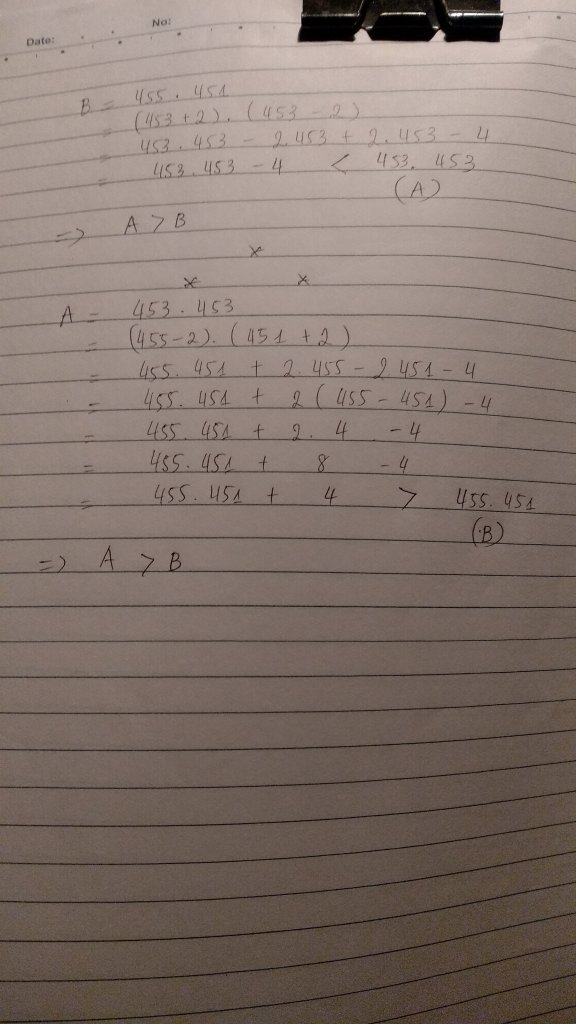 No:
Date:
B = 455 . 451
= (453 + 2) . (453 - 2)
= 453 . 453 - 2.453 + 2. 453 - 4
= 453 . 453 - 4 < 453. 453
(A)
=> A > B
x
x x
A = 453 . 453
= (455-2). (451 + 2)
= 455. 451 + 2. 455 - 2 451 - 4
= 455. 451 + 2 ( 455 - 451) - 4
= 455. 451 + 2. 4 - 4
= 455. 451 + 8 - 4
= 455. 451 + 4 > 455. 451
(B)
=> A > B